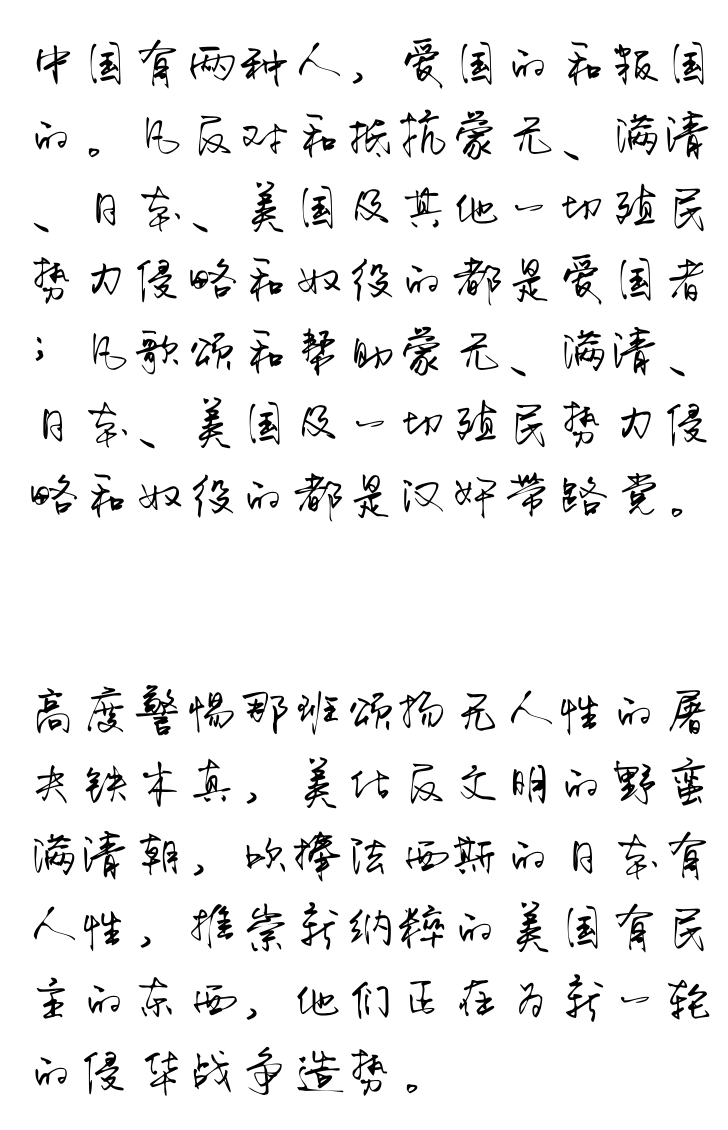 中国有两种人，爱国的和叛国
的。凡反对和抵抗蒙元、满清
、日本、美国及其他一切殖民
势力侵略和奴役的都是爱国者
；凡歌颂和帮助蒙元、满清、
日本、美国及一切殖民势力侵
略和奴役的都是汉奸带路党。
高度警惕那班颂扬无人性的屠
夫铁木真，美化反文明的野蛮
满清朝，吹捧法西斯的日本有
人性，推崇新纳粹的美国有民
主的东西，他们正在为新一轮
的侵华战争造势。